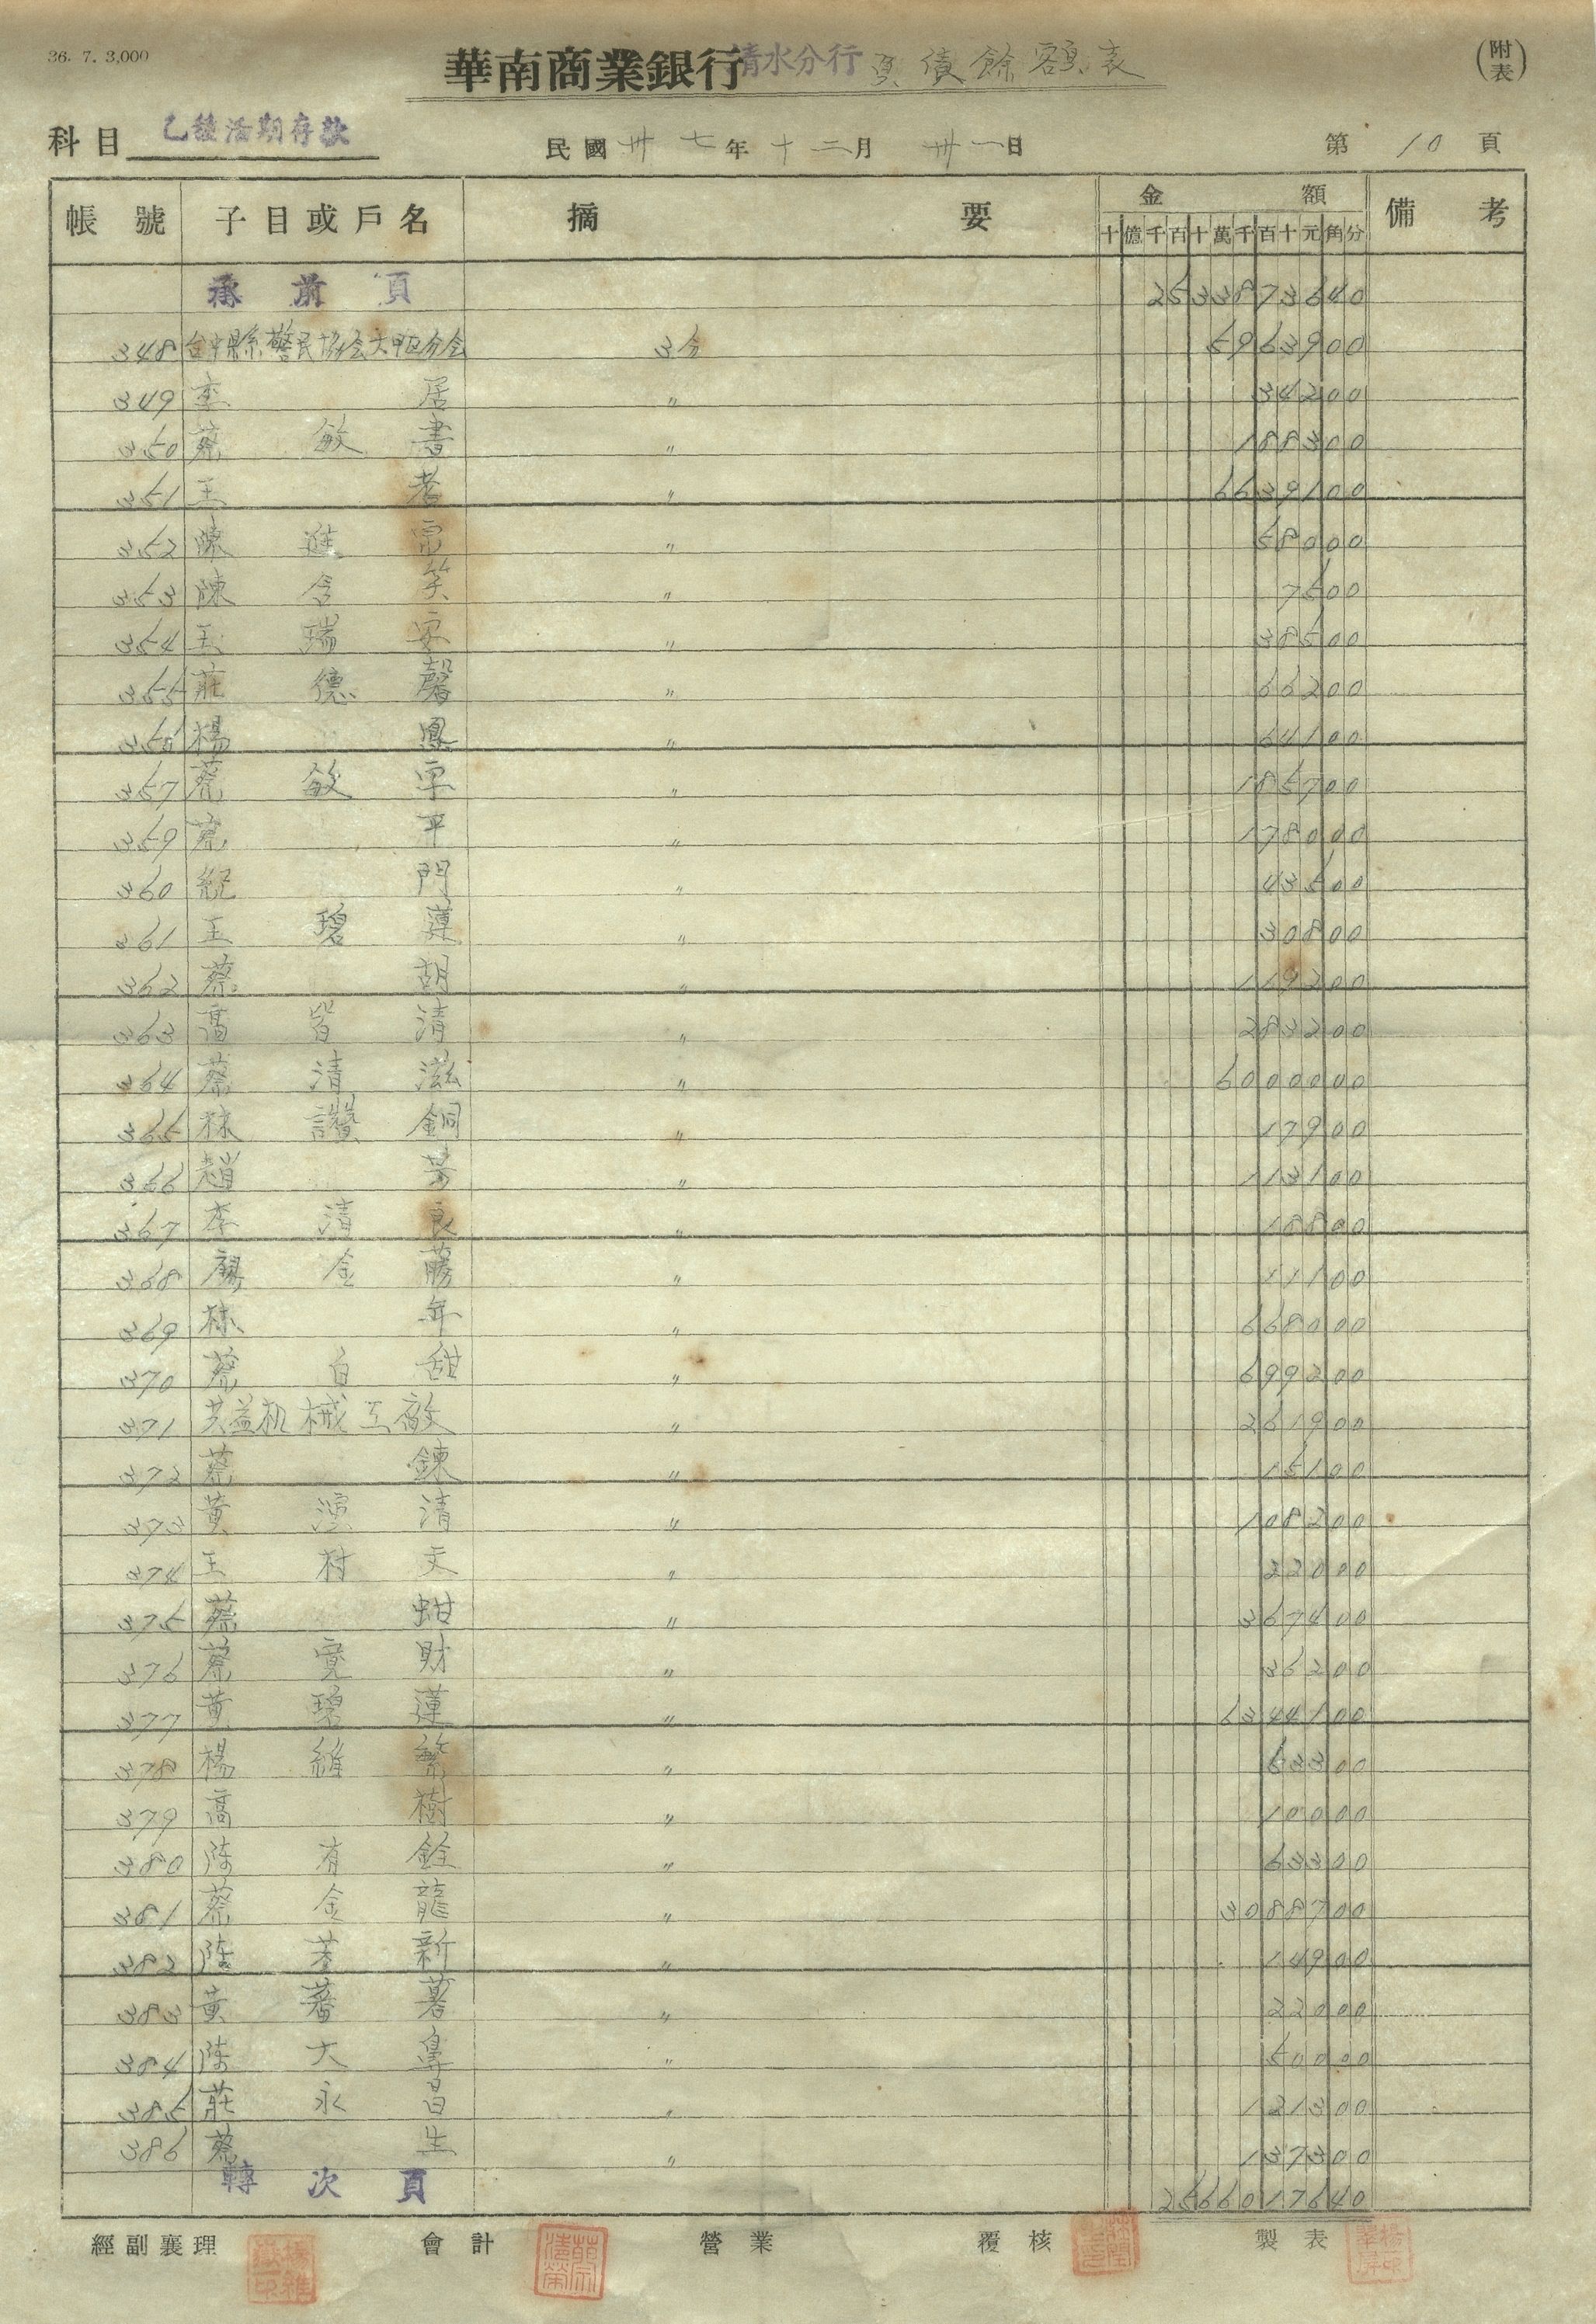 36. 7. 3,000
華南商業銀行清水分行負債餘額表
(附表)
科目 乙種活期存款 民國卅七年十二月卅一日 第10頁
帳號 子目或戶名 摘要 金額 備考
十億千百十萬千百十元角分
承前頁 2533873640
348 台中縣警民協会大甲区分会 3分 5963900
349 李居 〃 34200
350 蔡敏書 〃 188300
351 王老 〃 6639100
352 陳進 〃 58000
353 陳含笑 〃 7500
354 王瑞安 〃 38500
355 莊德馨 〃 66200
356 楊鳳 〃 64100
357 蔡敏 〃 185700
359 蔡平 〃 178000
360 紀門 〃 43500
361 王碧蓮 〃 30800
362 蔡胡 〃 119200
363 高清 〃 283200
364 蔡清滋 〃 6000000
365 林讚銅 〃 17900
366 趙芳 〃 113100
367 李清良 〃 18800
368 金 〃 11100
369 林年 〃 668000
370 蔡白甜 〃 699200
371 共益机械工廠 〃 261900
372 蔡鍊 〃 15100
373 黃濱清 〃 108200
374 王村文 〃 22000
375 蔡蚶 〃 367400
376 蔡寬財 〃 36200
377 黃碧蓮 〃 6344100
378 楊維繁 〃 63300
379 高樹 〃 10000
380 陈有銓 〃 63300
381 蔡金龍 〃 3088700
382 陈新 〃 14900
383 黃蕃薯 〃 22000
384 陈大 〃 50000
385 莊永昌 〃 131300
386 蔡生 〃 137300
轉次頁 2566017640
經副襄理 會計 營業 覆核 製表